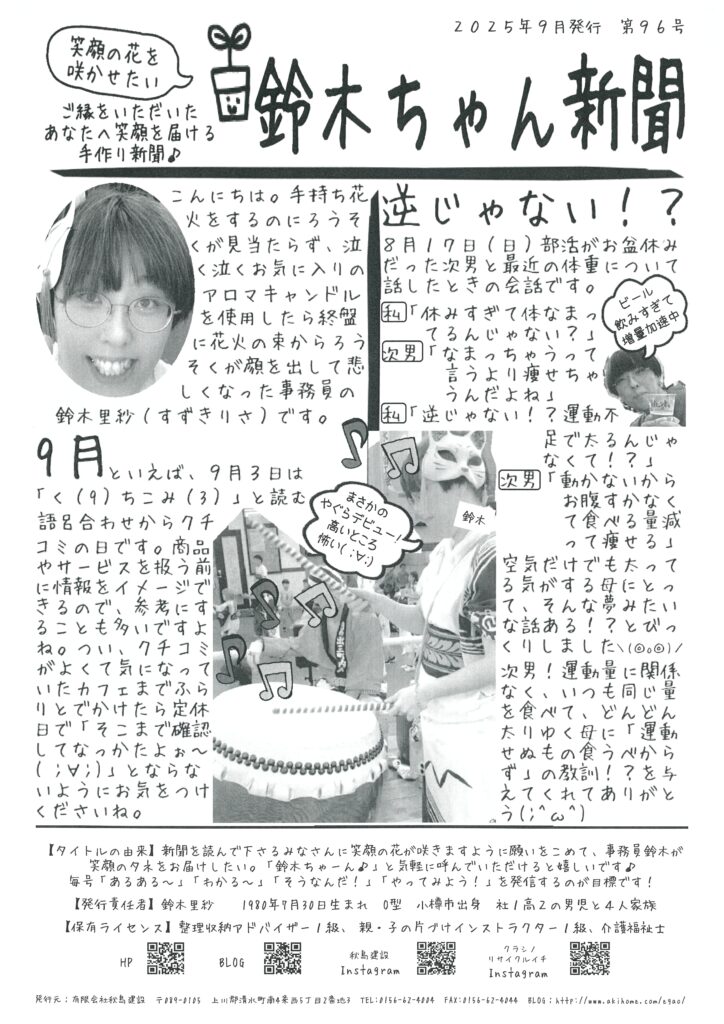 2025年9月発行 第96号
笑顔の花を
咲かせたい
ご縁をいただいた
あなたへ笑顔を届ける
手作り新聞♪
鈴木ちゃん新聞
こんにちは。手持ち花
火をするのにろうそ
くが見当たらず、泣
く泣くお気に入りの
アロマキャンドル
を使用したら終盤
に花火の束からろう
そくが顔を出して悲
しくなった事務員の
鈴木里紗(すずきりさ)です。
9月といえば、9月3日は
「く(9)ちこみ(3)」と読む
語呂合わせからクチ
コミの日です。商品
やサービスを扱う前
に情報をイメージで
きるので、参考にす
ることも多いですよ
ね。つい、クチコミ
がよくて気になって
いたカフェまでふら
りとでかけたら定休
日で「そこまで確認
してなっかたよぉ~
(;∀;)」とならな
いようにお気をつけ
くださいね。
まさかの
やぐらデビュー!
高いところ
怖い(;∀;)
鈴木
逆じゃない!?
8月17日(日)部活がお盆休み
だった次男と最近の体重について
話したときの会話です。
私「休みすぎて体なまっ
てるんじゃない?」
次男「なまっちゃうって
言うより痩せちゃ
うんだよね」
私「逆じゃない!?運動不
足で太るんじゃ
なくて!?」
次男「動かないから
お腹すかなく
て食べる量減
って痩せる」
ビール
飲みすぎて
増量加速中
空気だけでも太って
る気がする母にとっ
て、そんな夢みたい
な話ある!?とびっ
くりしました\(◎o◎)/
次男!運動量に関係
なく、いつも同じ量
を食べて、どんどん
太りゆく母に「運動
せぬもの食うべから
ず」の教訓!?を与
えてくれてありがと
う(;^ω^)
【タイトルの由来】新聞を読んで下さるみなさんに笑顔の花が咲きますように願いをこめて、事務員鈴木が
笑顔のタネをお届けしたい。「鈴木ちゃーん♪」と気軽に呼んでいただけると嬉しいです♪
毎号「あるある~」「わかる~」「そうなんだ!」「やってみよう!」を発信するのが目標です!
【発行責任者】鈴木里紗 1980年7月30日生まれ O型 小樽市出身 社1高2の男児と4人家族
【保有ライセンス】整理収納アドバイザー1級、親・子の片づけインストラクター1級、介護福祉士
HP
BLOG
秋島建設
Instagram
クラシノ
リサイクルイチ
Instagram
発行元:有限会社秋島建設 〒089-0105 上川郡清水町南4条西5丁目2番地3 TEL:0156-62-4004 FAX:0156-62-4044 BLOG:http://www.akihome.com/egao/